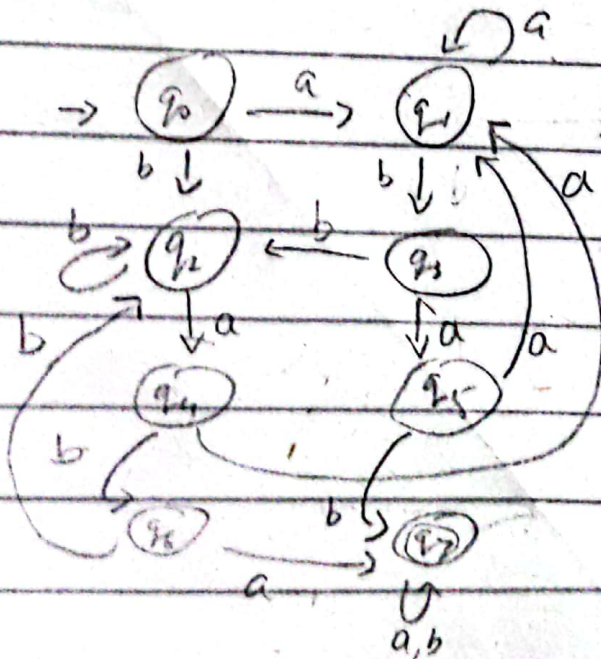 a
q0 a q1
b b a
b q2 b q3
a a a
b q4 q5
b b
q6 q7
a
a,b